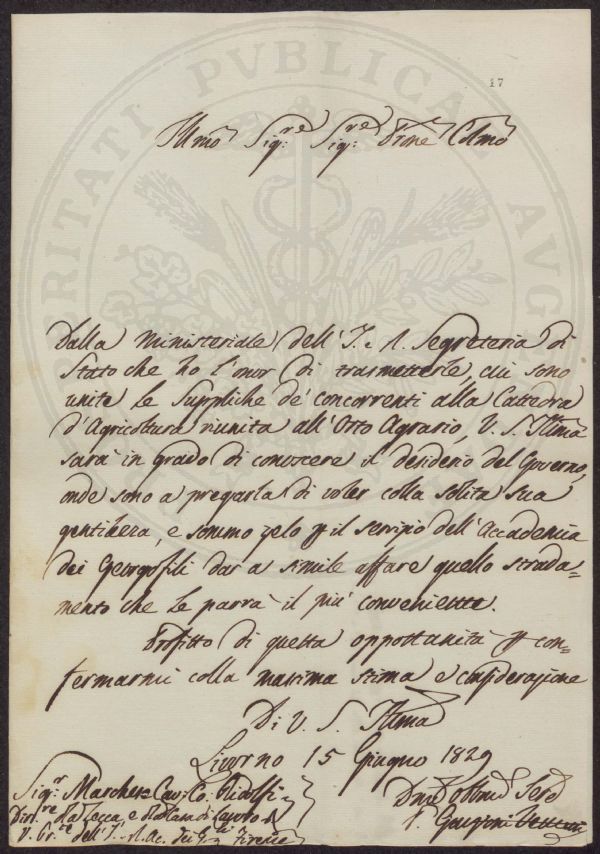 PROSPERITATI PVBLICAE AVGENDAE
17
Illmo Sig:re Sig:re Prone Colmo
Dalla Ministeriale dell'I. e R. Segreteria di
Stato che ho l'onor di trasmetterle, cui sono
unite le Suppliche de' concorrenti alla Cattedra
d'Agricoltura riunita all'Orto Agrario, V. S. Illma
sarà in grado di conoscere il desiderio del Governo,
onde sono a pregarla di voler colla solita sua
gentilezza, e sommo zelo p il servizio dell'Accademia
dei Georgofili dar a simile affare quello strada=
mento che le parrà il più conveniente.
Profitto di questa opportunità p con=
fermarmi colla massima stima e considerazione
Di V. S. Illma
Livorno 15 Giugno 1829
Sig:r Marchese Cav: Co. Ridolfi
Dir:re della Zecca e
V. Pr:te dell'I. e R. Ac. dei G:li Firenze
Dmo Obbmo Serv